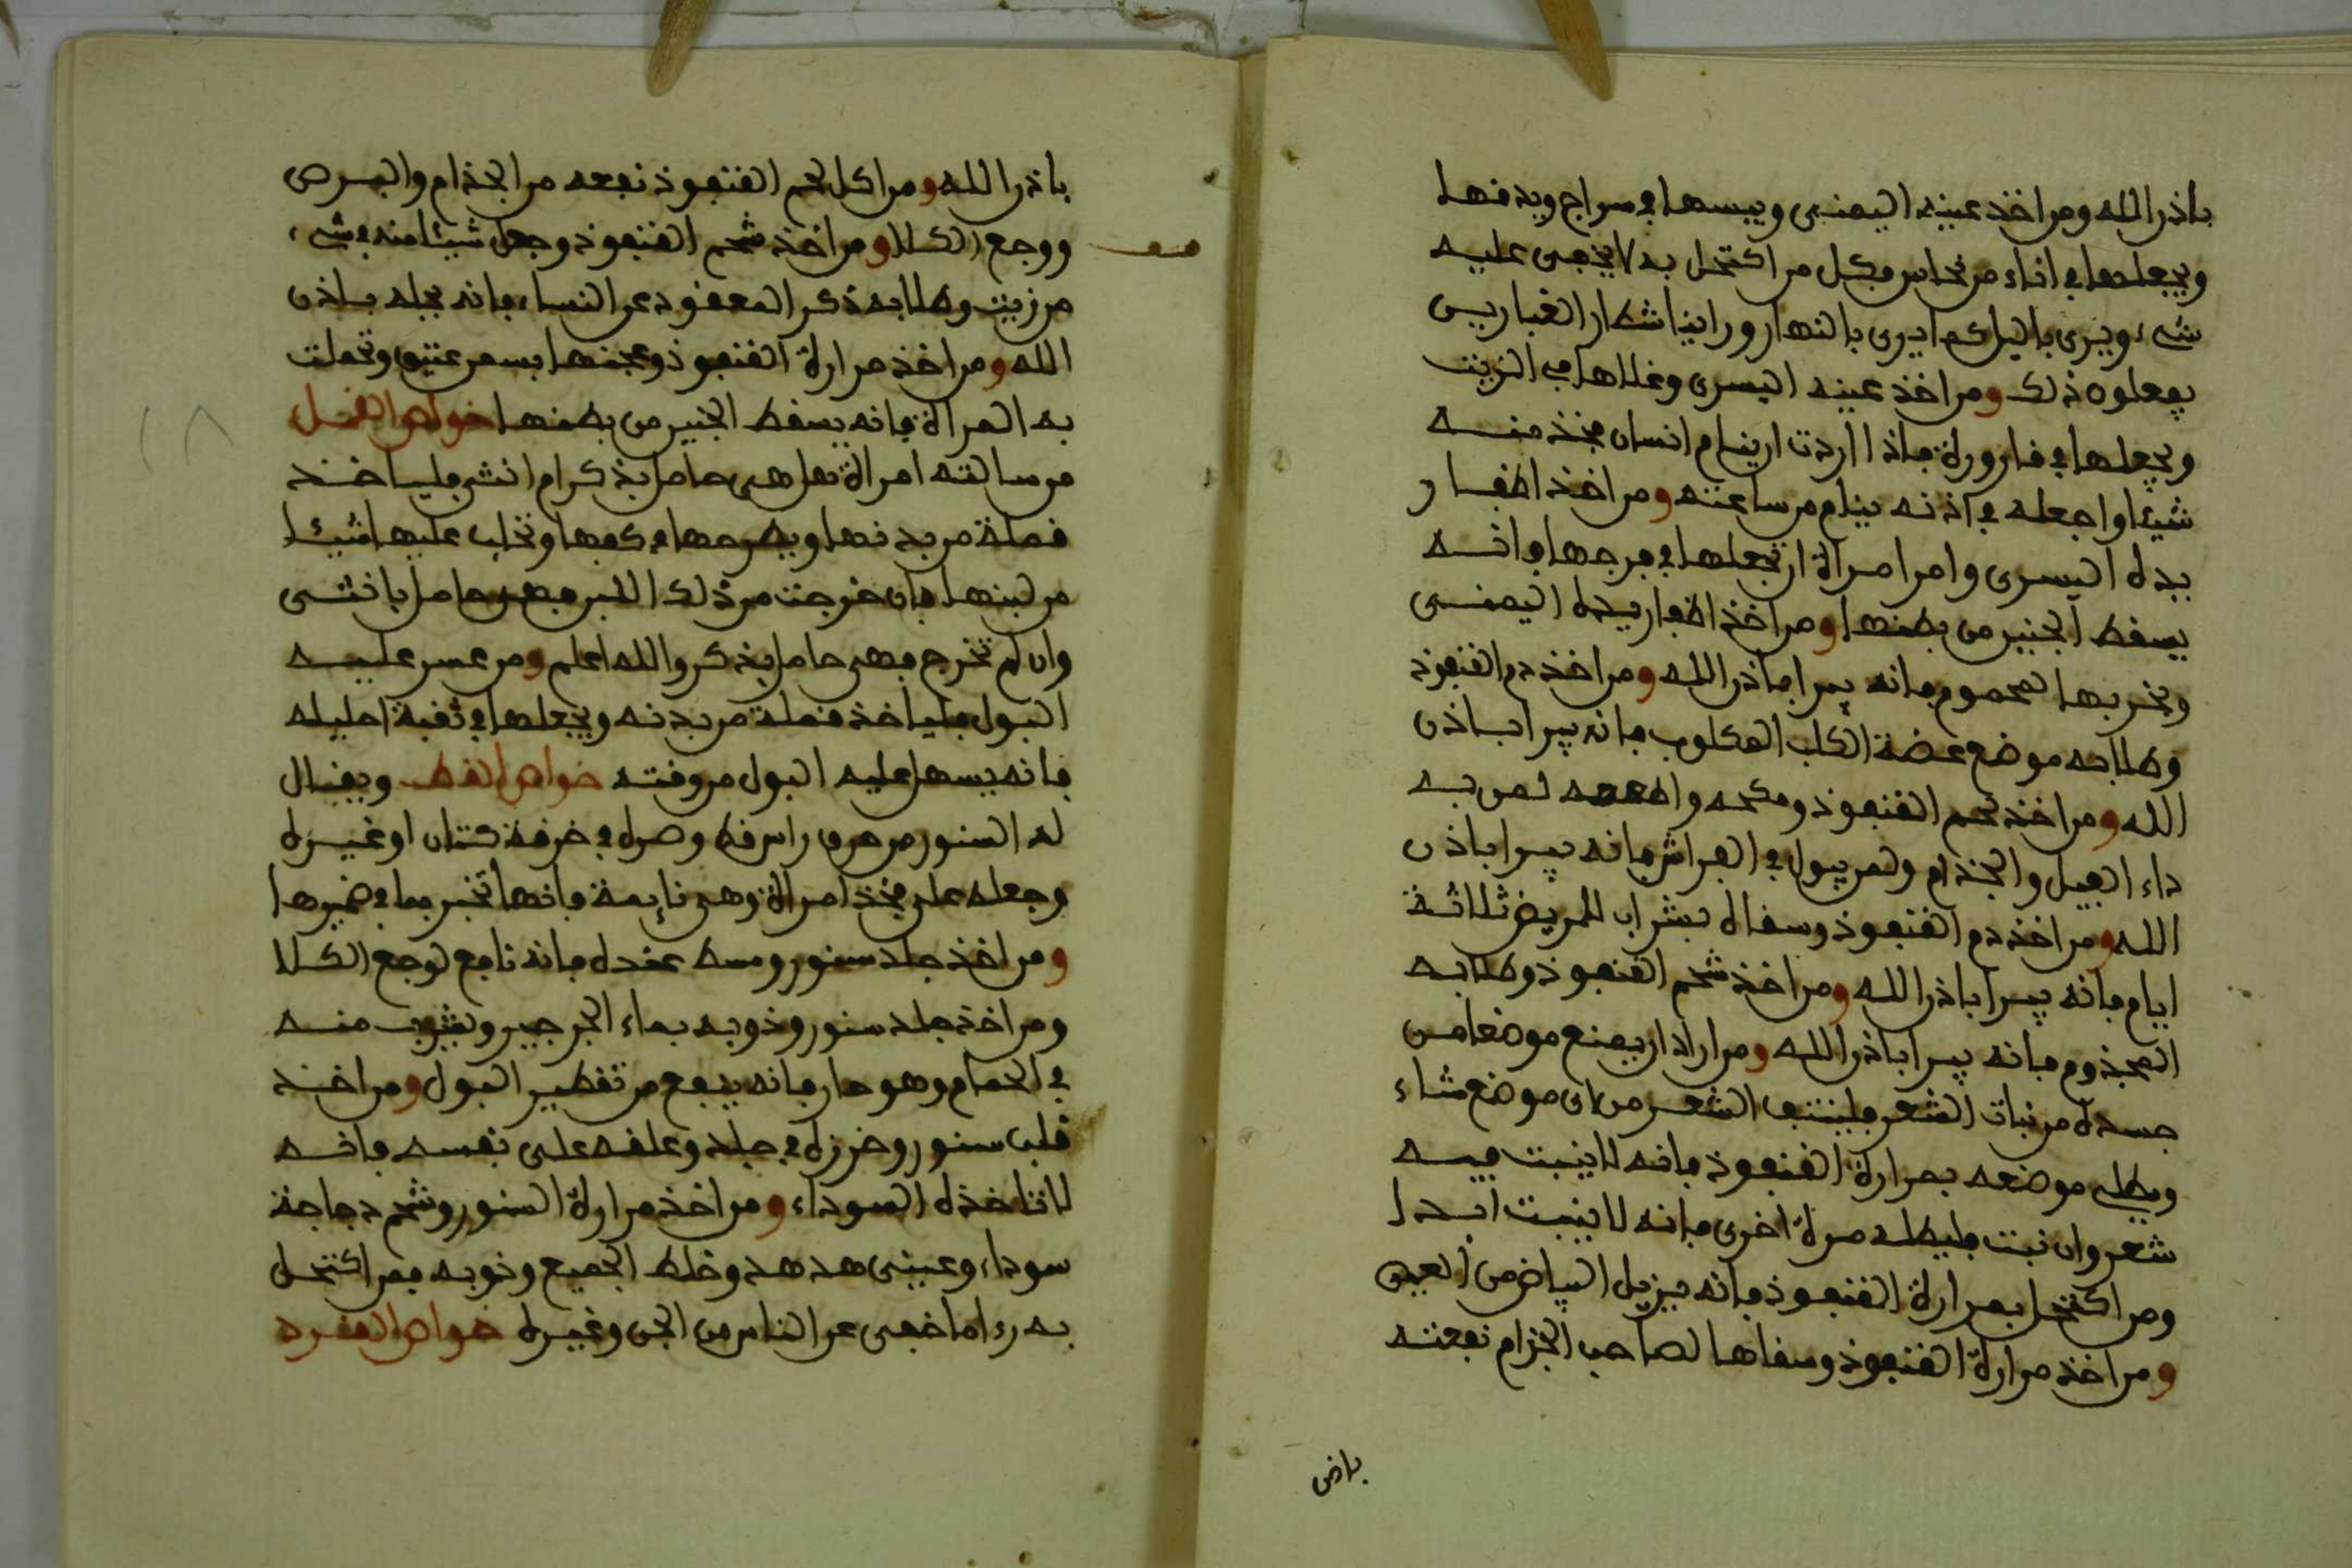 باذن الله ومن اخذ عينه اليمنى ويبسها في سراج ويدفنها
ويجعلها في اناء من نحاس فكل من اكتحل به لا يخفى عليه
شيء ويرى باليل كما يرى بالنهار وراينا شطار الغباريس
يفعلوه ذلك ومن اخذ عينه اليسرى وغلاها في الزيت
ويجعلها في قارورة فاذا اردت ان ينام انسان فخذ منه
شيئا واجعله في اذنه ينام من ساعته ومن اخذ اظفار
يده اليسرى وامر امراة ان تجعلها في فرجها فانه
يسقط الجنين من بطنها ومن اخذ اظفار يده اليمنى
وبخر بها المحموم فانه يبرا باذن الله ومن اخذ دم القنفوذ
وطلا به موضع عضة الكلب المكلوب فانه يبرا باذن
الله ومن اخذ لحم القنفوذ وملحه واطعمه لمن به
داء الفيل والجذام ولمن يبول في الفراش فانه يبرا باذن
الله ومن اخذ دم القنفوذ وسقاه بشراب للمريض ثلاثة
ايام فانه يبرا باذن الله ومن اخذ شحم القنفوذ وطلا به
المجذوم فانه يبرا باذن الله ومن اراد ان يمنع موضعا من
جسده من نبات الشعر فلينتف الشعر من اي موضع شاء
ويطلي موضعه بمرارة القنفوذ فانه لا ينبت فيه
شعر وان نبت فليطله مرة اخرى فانه لا ينبت ابدا
ومن اكتحل بمرارة القنفوذ فانه يزيل البياض من العين
ومن اخذ مرارة القنفوذ وسقاها لصاحب الجزام نفعته
باذن
باذن الله ومن اكل لحم القنفوذ نفعه من الجذام والبرص
ووجع الكلا ومن اخذ شحم القنفوذ وجعل شيئا منه في شيء
من زيت وطلا به ذكر المعقود عن النساء فانه يحله باذن
الله ومن اخذ مرارة القنفوذ وعجنها بسمن عتيق وتحملت
به المراة فانه يسقط الجنين من بطنها خواص القمل
من سالته امراة هل هي حامل بذكر ام انثى فليا خذ
قملة من بدنها ويطرحها في كفها وتحلب عليها شيئا
من لبنها فان خرجت من ذلك اللبن فهي حامل بانثى
وان لم تخرج فهي حامل بذكر والله اعلم ومن عسر عليه
البول فليا خذ قملة من بدنه ويجعلها في ثقبة احليله
فانه يسهل عليه البول من وقته خواص القط ويقال
له السنور من حرق راس قط وصره في خرقة كتان او غيره
وجعله على فخذ امراة وهي نايمة فانها تخبر بما في ضميرها
ومن اخذ جلد سنور ومسه عنده فانه نافع لوجع الكلا
ومن اخذ جلد سنور وذوبه بماء الجرجير ويشرب منه
في الحمام وهو حار فانه ينفع من تقطير البول ومن اخذ
قلب سنور وخرزه في جلد وعلقه على نفسه فانه
لا تاخذه السوداء ومن اخذ مرارة السنور وشحم دجاجة
سوداء وعيني هدهد وخلط الجميع وذوبه فمن اكتحل
به رءا ما خفى عن الناس من الجن وغيره خواص القرد